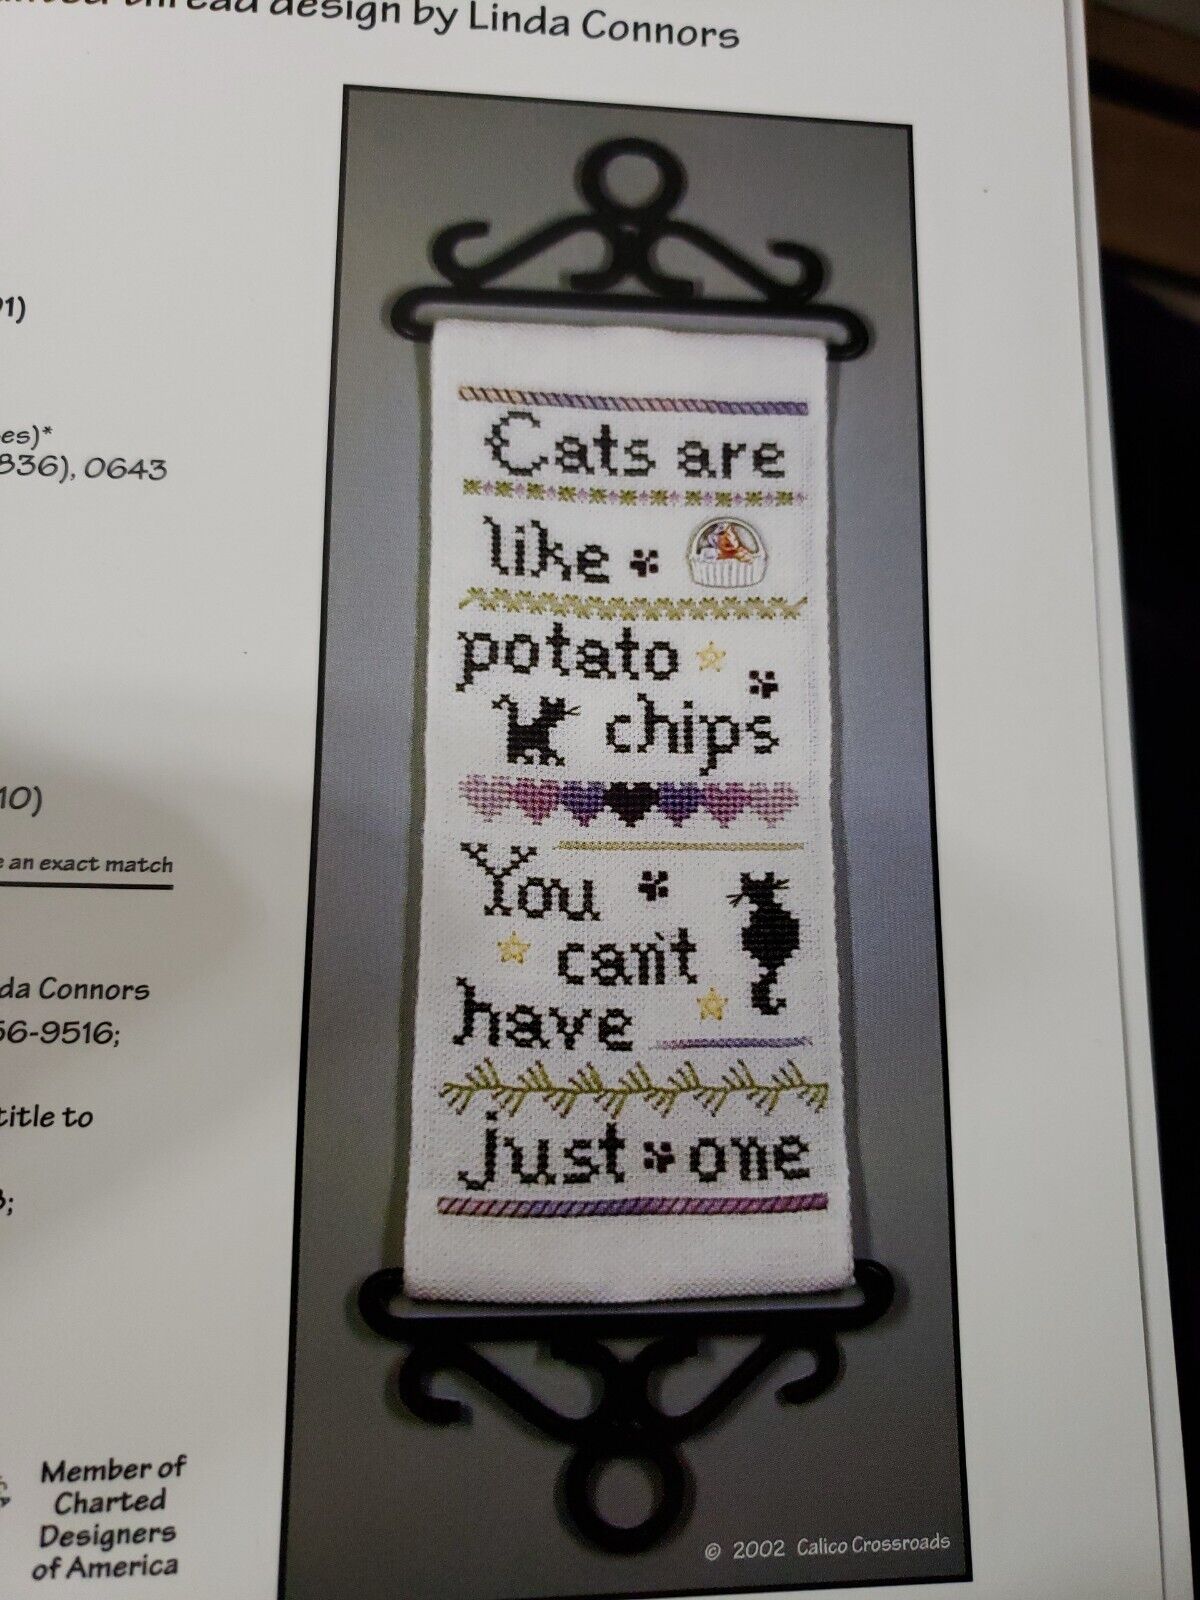 thread design by Linda Connors
91)
es)*
836), 0643
10)
an exact match
da Connors
56-9516;
title to
3;
Member of
Charted
Designers
of America
Cats are
like
potato
chips
You
can't
have
Just one
© 2002 Calico Crossroads